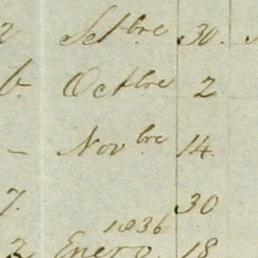 2 Setbre 30.
6. Octbre 2
– Novbre 14
7. 30
1836
3 Enero 18